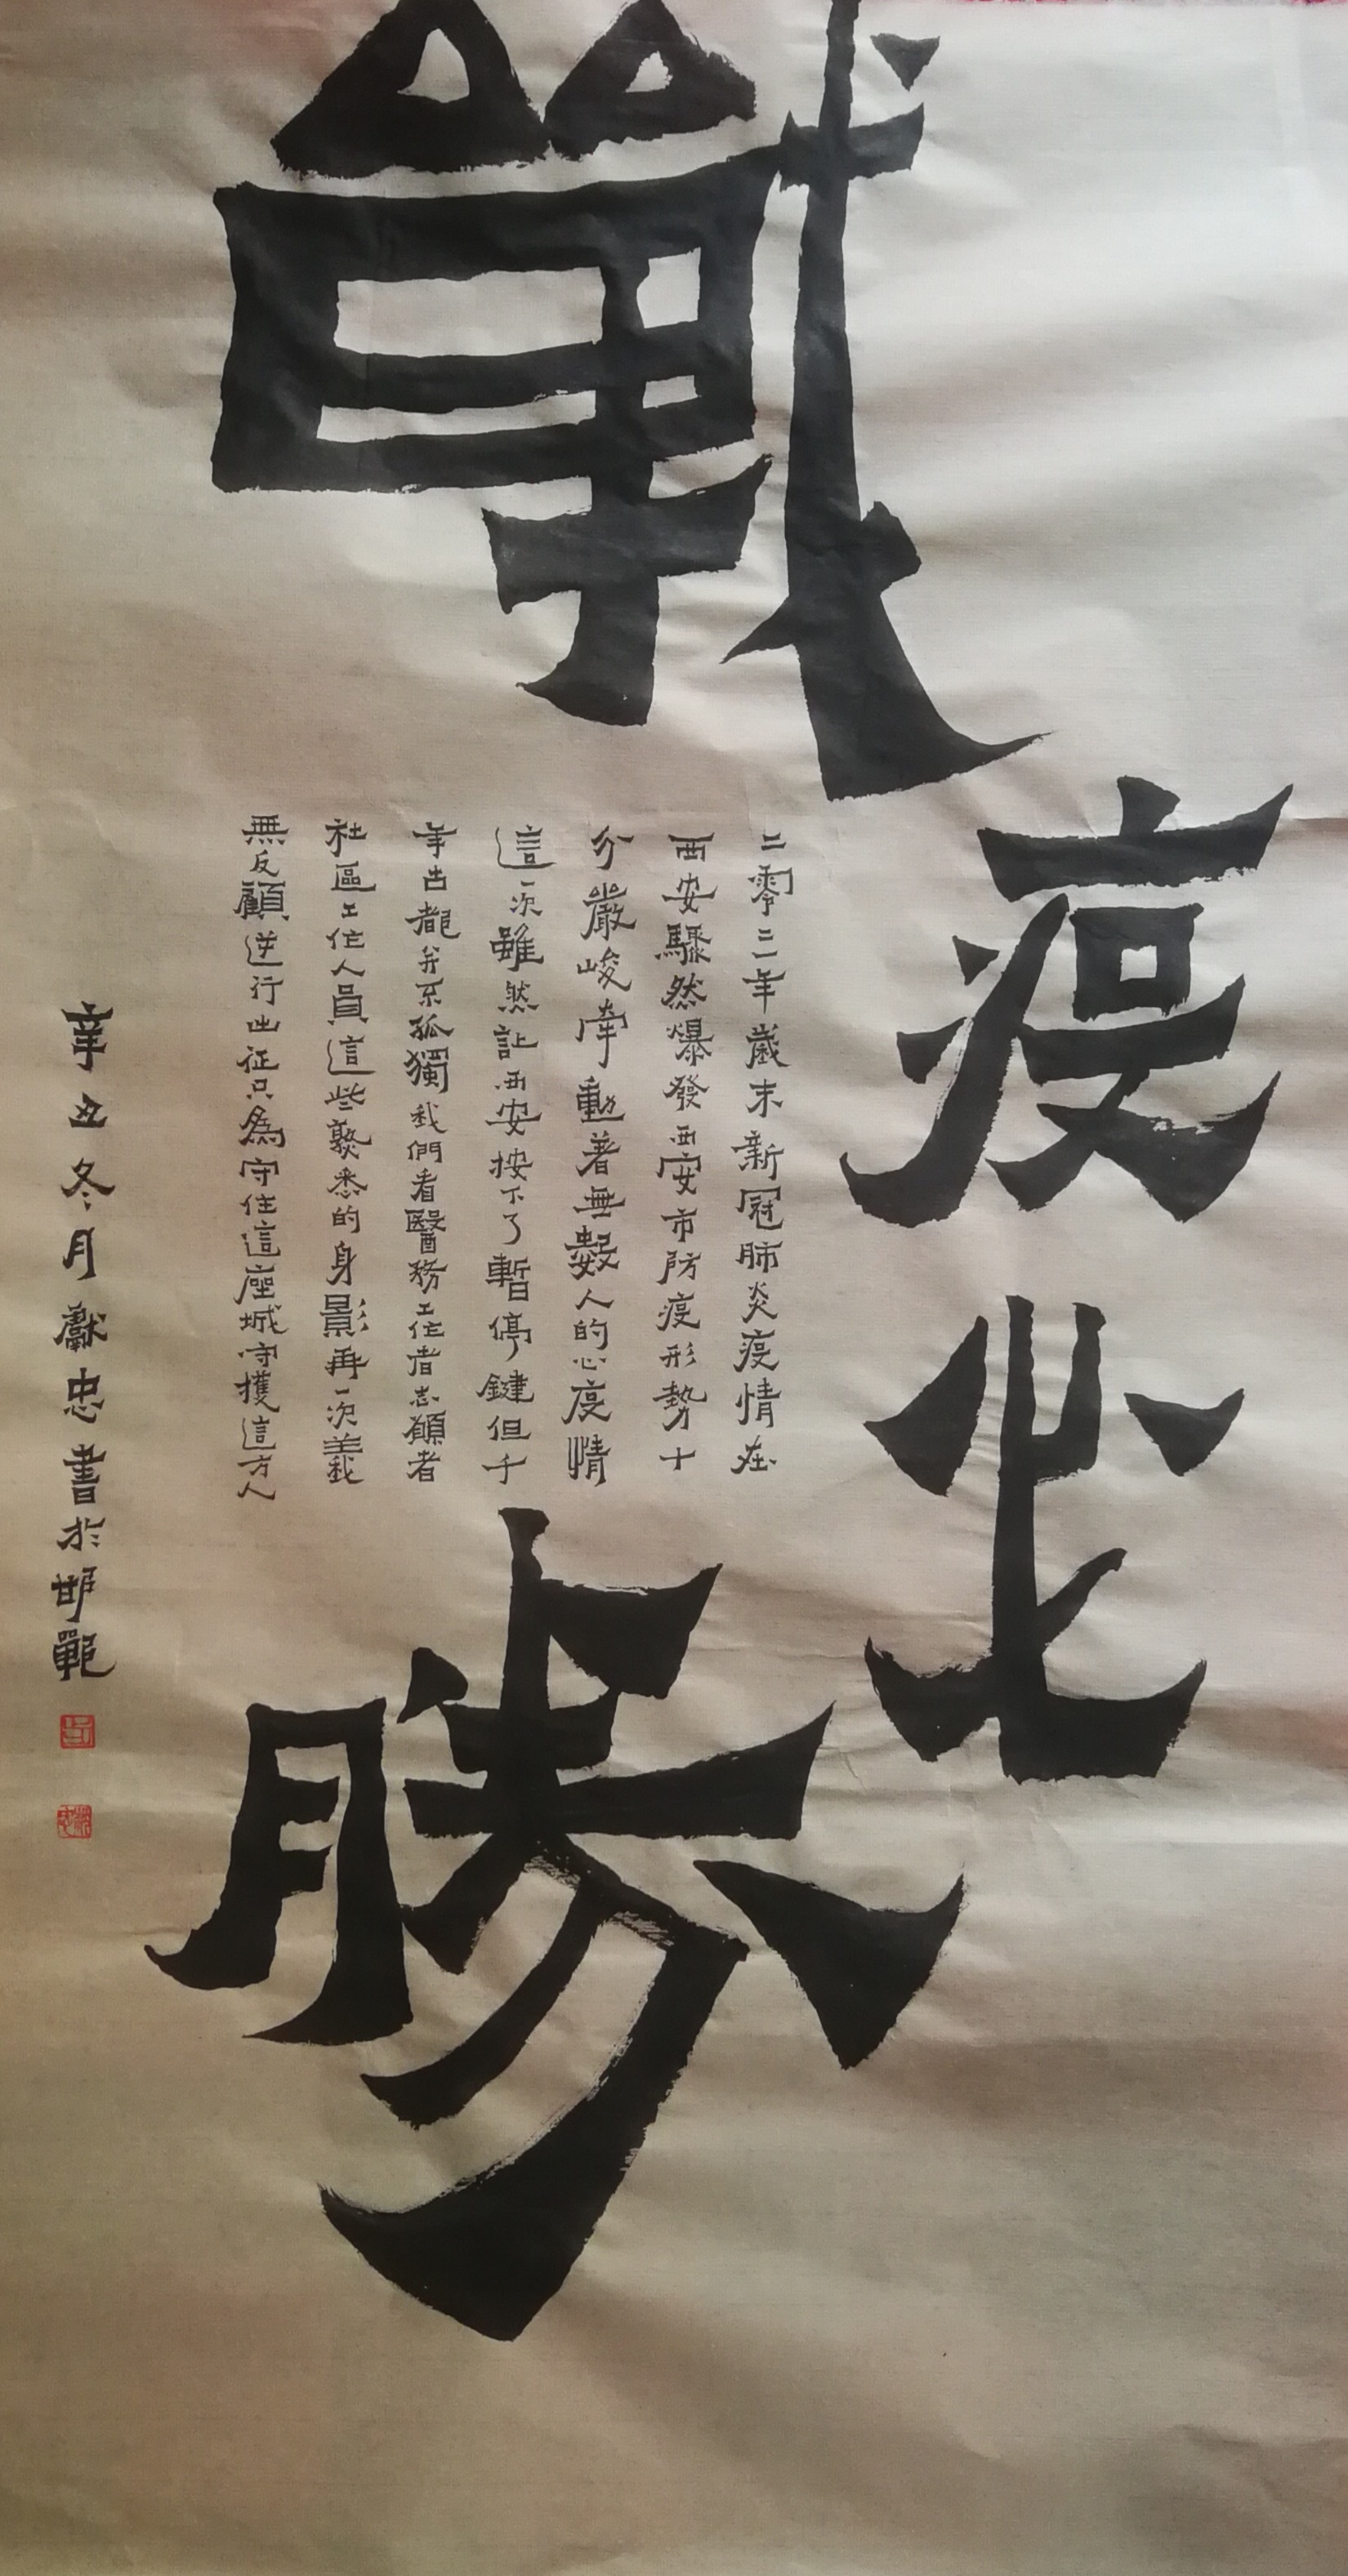 戰
疫
必
勝
二零二一年歲末新冠肺炎疫情在
西安驟然爆發西安市防疫形勢十
分嚴峻牽動著無數人的心疫情
這一次雖然让西安按下了暫停鍵但千
年古都并不孤獨我們看醫務工作者志願者
社區工作人員這些熟悉的身影再一次義
無反顧逆行出征只為守住這座城守擭這方人
辛丑冬月獻忠書於邯鄲